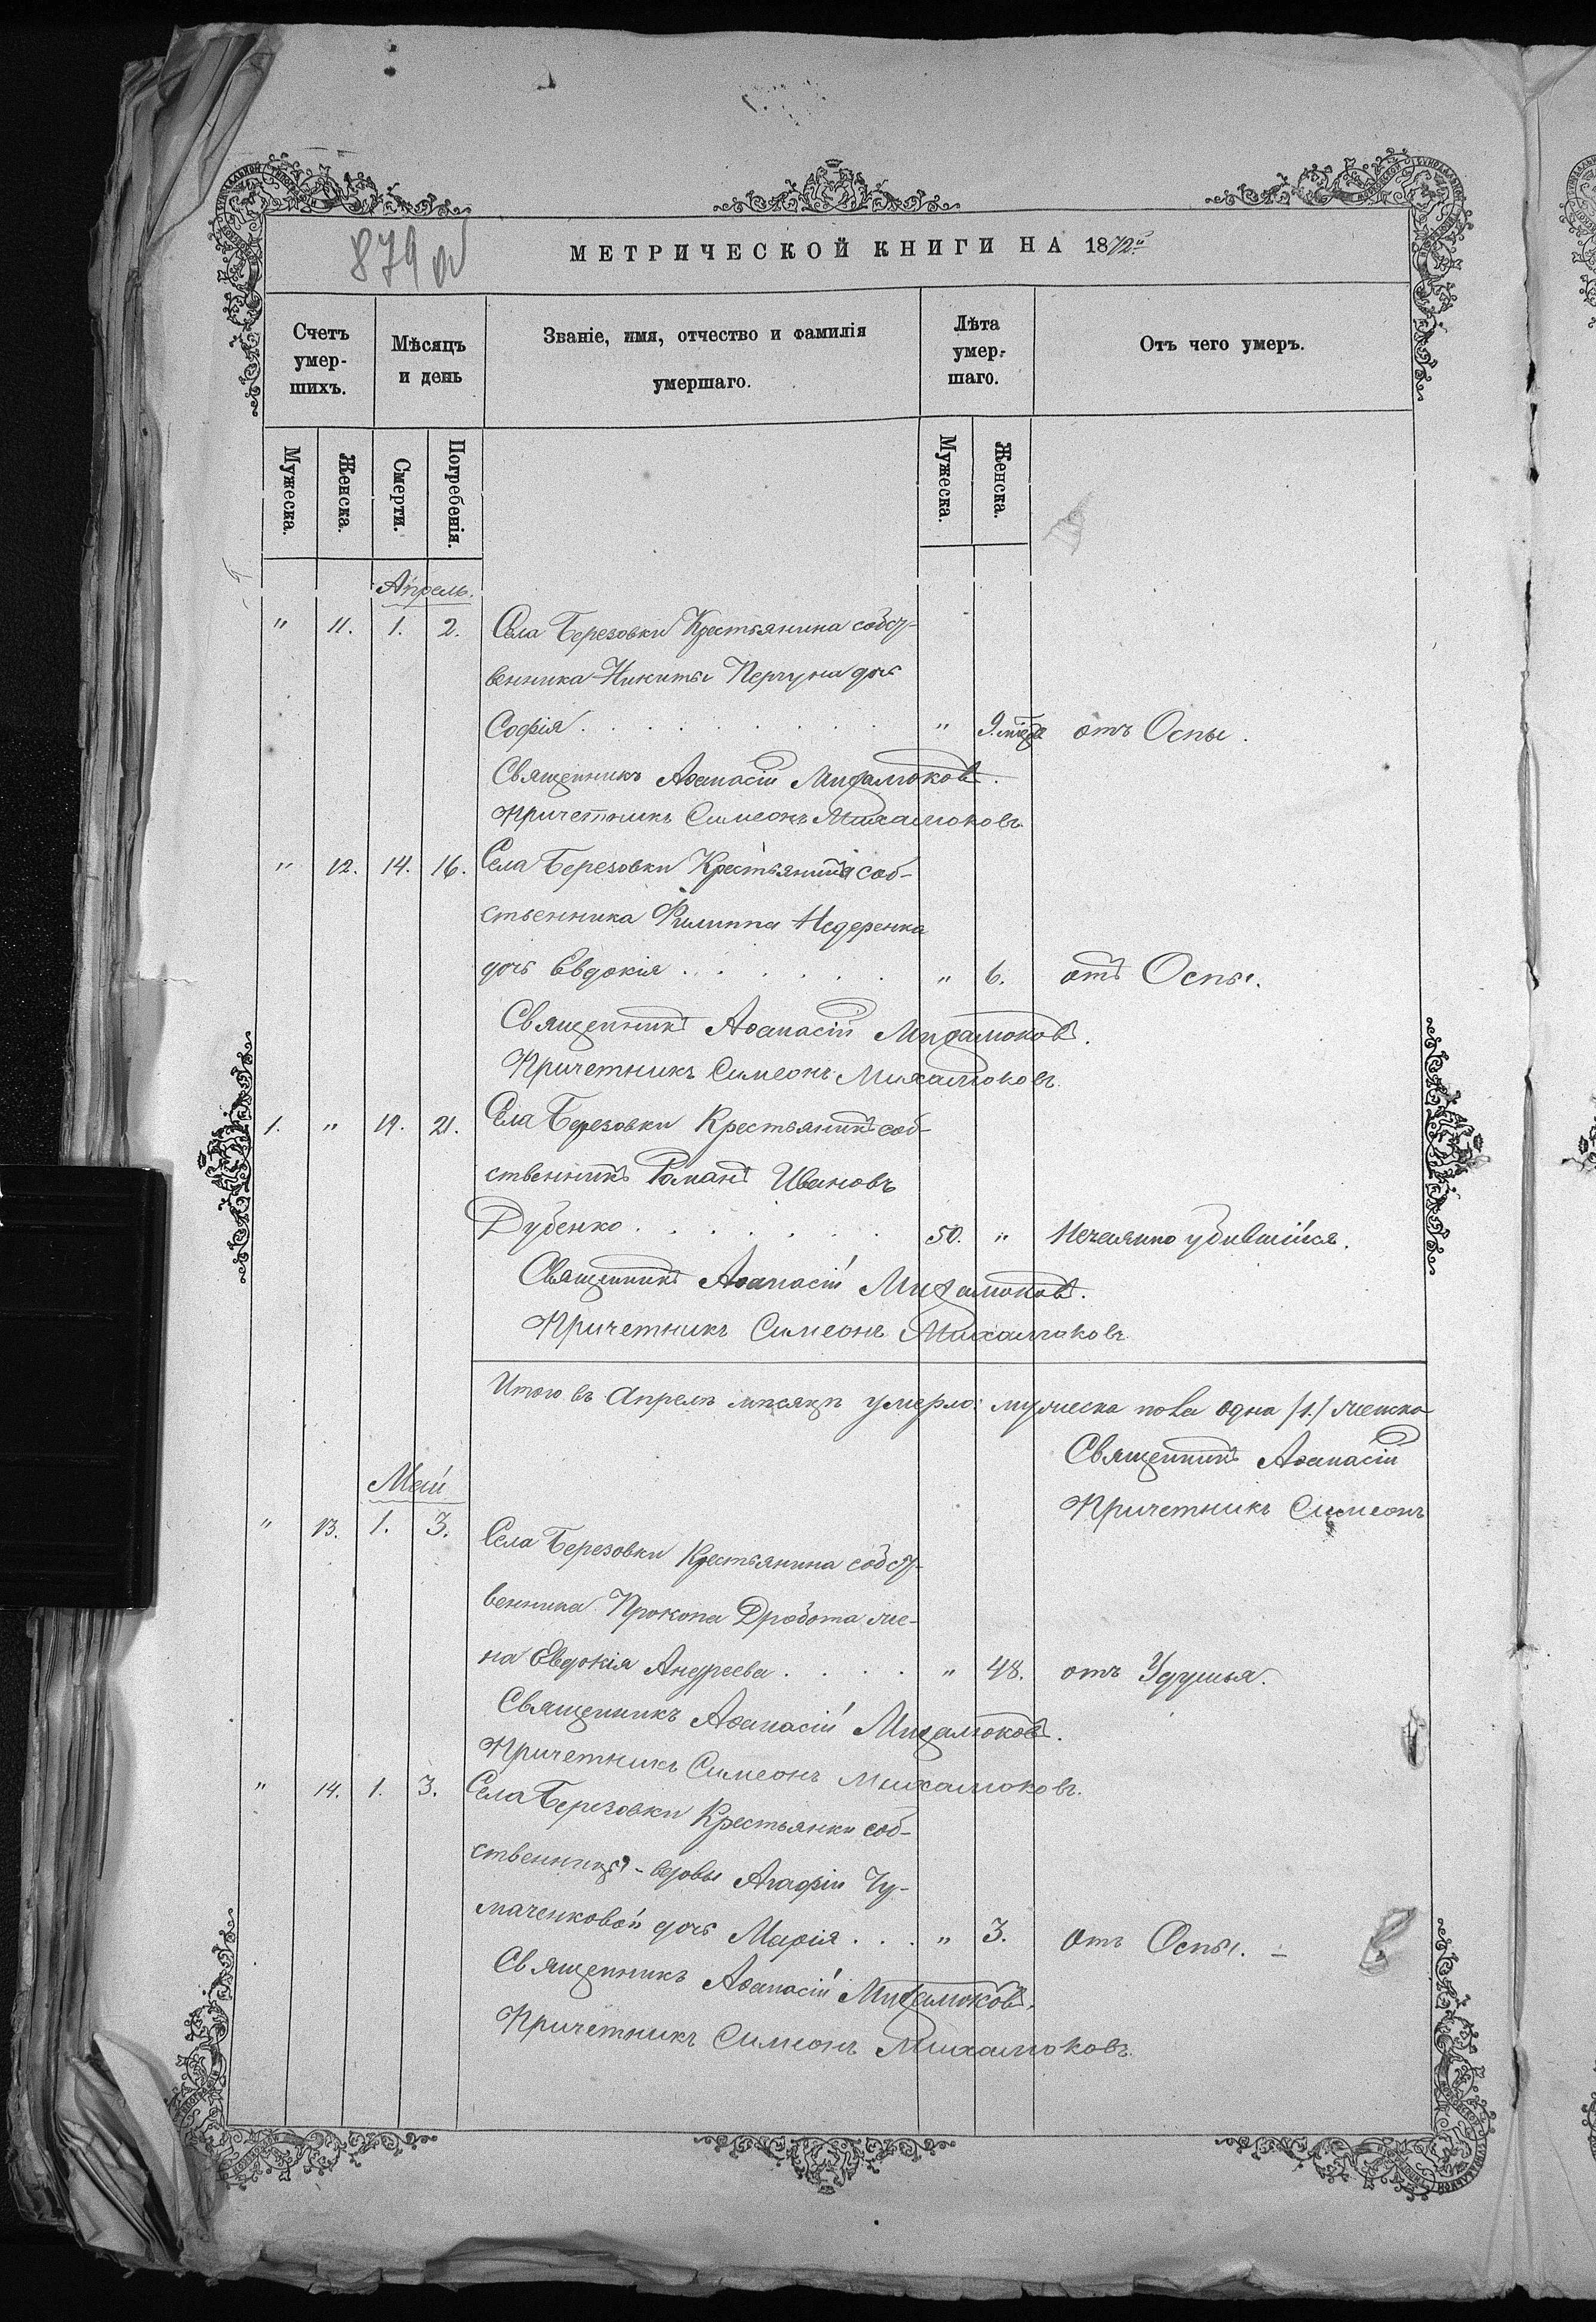 879 об
МЕТРИЧЕСКОЙ КНИГИ НА 1872й
Счетъ умер-шихъ.
Мѣсяцъ и день
Званіе, имя, отчество и фамилія умершаго.
Лѣта умер-шаго.
Отъ чего умеръ.
Мужеска. Женска. Смерти. Погребенія. Мужеска. Женска.
Апрель.
" 11. 1. 2. Села Березовки Крестьянина собст-
венника Никиты Перчуна дочь
Софія . . . . . . . " 9. отъ Оспы.
Священникъ Аѳанасій Михалюковъ.
Причетникъ Симеонъ Михалюковъ.
" 12. 14. 16. Села Березовки Крестьянина соб-
ственника Филиппа Недеренка
дочь Евдокія . . . . . . " 6. отъ Оспы.
Священникъ Аѳанасій Михалюковъ.
Причетникъ Симеонъ Михалюковъ.
1. " 19. 21. Села Березовки Крестьянинъ соб-
ственникъ Романъ Ивановъ
Дубенко . . . . . . 50. " Нечаянно убившійся.
Священникъ Аѳанасій Михалюковъ.
Причетникъ Симеонъ Михалюковъ
Итого въ Апрелѣ мѣсяцѣ умерло: мужеска пола одна /1./ женска
Священникъ Аѳанасій
Причетникъ Симеонъ
Май
" 13. 1. 3. Села Березовки Крестьянина собст-
венника Прокопа Дробота же-
на Евдокія Андреева . . . . " 48. отъ Удушья.
Священникъ Аѳанасій Михалюковъ.
Причетникъ Симеонъ Михалюковъ.
" 14. 1. 3. Села Березовки Крестьянки соб-
ственницы - вдовы Агафіи Чу-
маченковой дочь Марія . . . " 3. Отъ Оспы. -
Священникъ Аѳанасій Михалюковъ.
Причетникъ Симеонъ Михалюковъ.